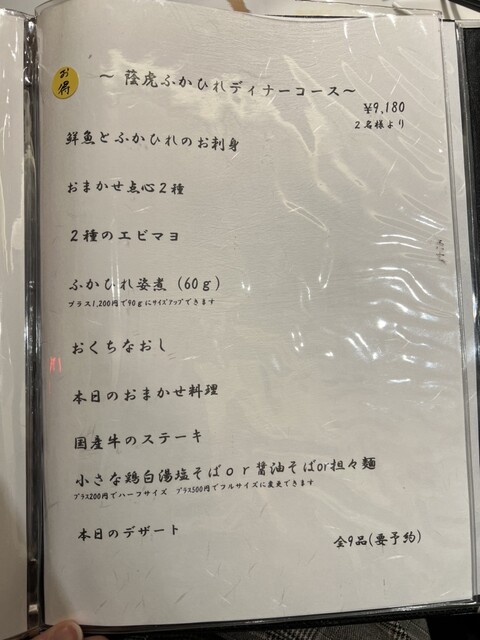 お得
～ 蔭虎ふかひれディナーコース～
¥9,180
2名様より
鮮魚とふかひれのお刺身
おまかせ点心2種
2種のエビマヨ
ふかひれ姿煮 (60g)
プラス1,200円で90gにサイズアップできます
おくちなおし
本日のおまかせ料理
国産牛のステーキ
小さな鶏白湯塩そばor醤油そばor担々麺
プラス200円でハーフサイズ プラス500円でフルサイズに変更できます
本日のデザート
全9品(要予約)